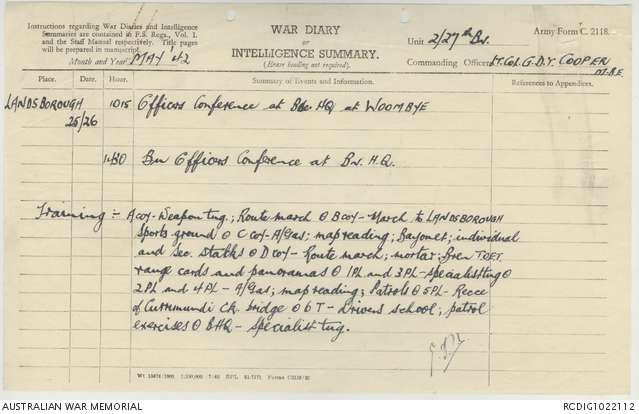 Instructions regarding War Diaries and Intelligence
Summaries are contained in F.S. Regs., Vol. I.
and the Staff Manual respectively. Title pages
will be prepared in manuscript.
Month and Year MAY '42
WAR DIARY
or
INTELLIGENCE SUMMARY.
(Erase heading not required).
Army Form C. 2118.
Unit 2/27th Bn.
Commanding Officer Lt. Col. G.D.T. COOPER
M.B.E.
Place. Date. Hour. Summary of Events and Information. References to Appendices.
LANDSBOROUGH 1015 Officers Conference at Bde. HQ at WOOMBYE
25/26
1430 Bn Officers Conference at Bn. H.Q.
Training :- A coy - Weapon tng.; Route march @ B coy - March to LANDSBOROUGH
sports ground @ C coy - A/gas; map reading; Bayonet; individual
and sec. stalks @ D coy - Route march; mortar; Bren TOET.
range cards and panoramas @ 1PL and 3PL - specialist tng @
2PL and 4PL - A/gas; map reading; Patrols @ 5PL - Recce
of Currimundi Ck. bridge @ 6 T - Drivers school; patrol
exercises @ BHQ - specialist tng.
AUSTRALIAN WAR MEMORIAL
RCDIG1022112